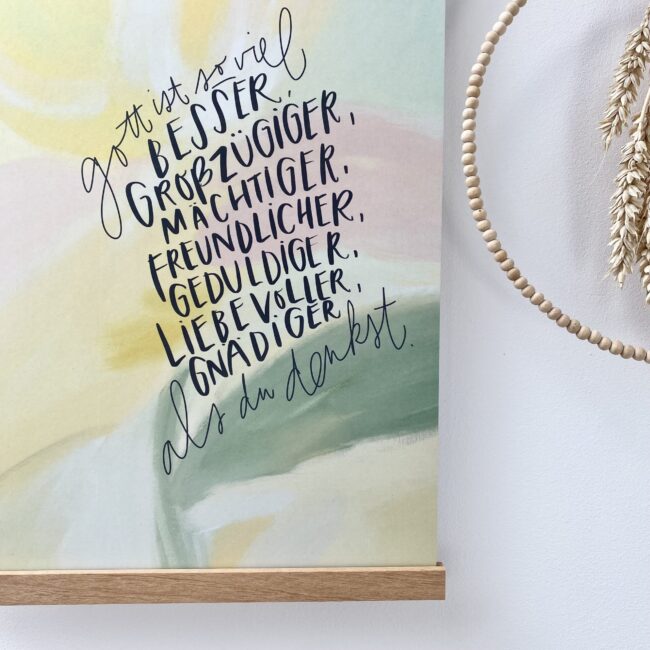 gott ist so viel
BESSER,
GROßZÜGIGER,
MÄCHTIGER,
FREUNDLICHER,
GEDULDIGER,
LIEBEVOLLER,
GNÄDIGER
als du denkst.